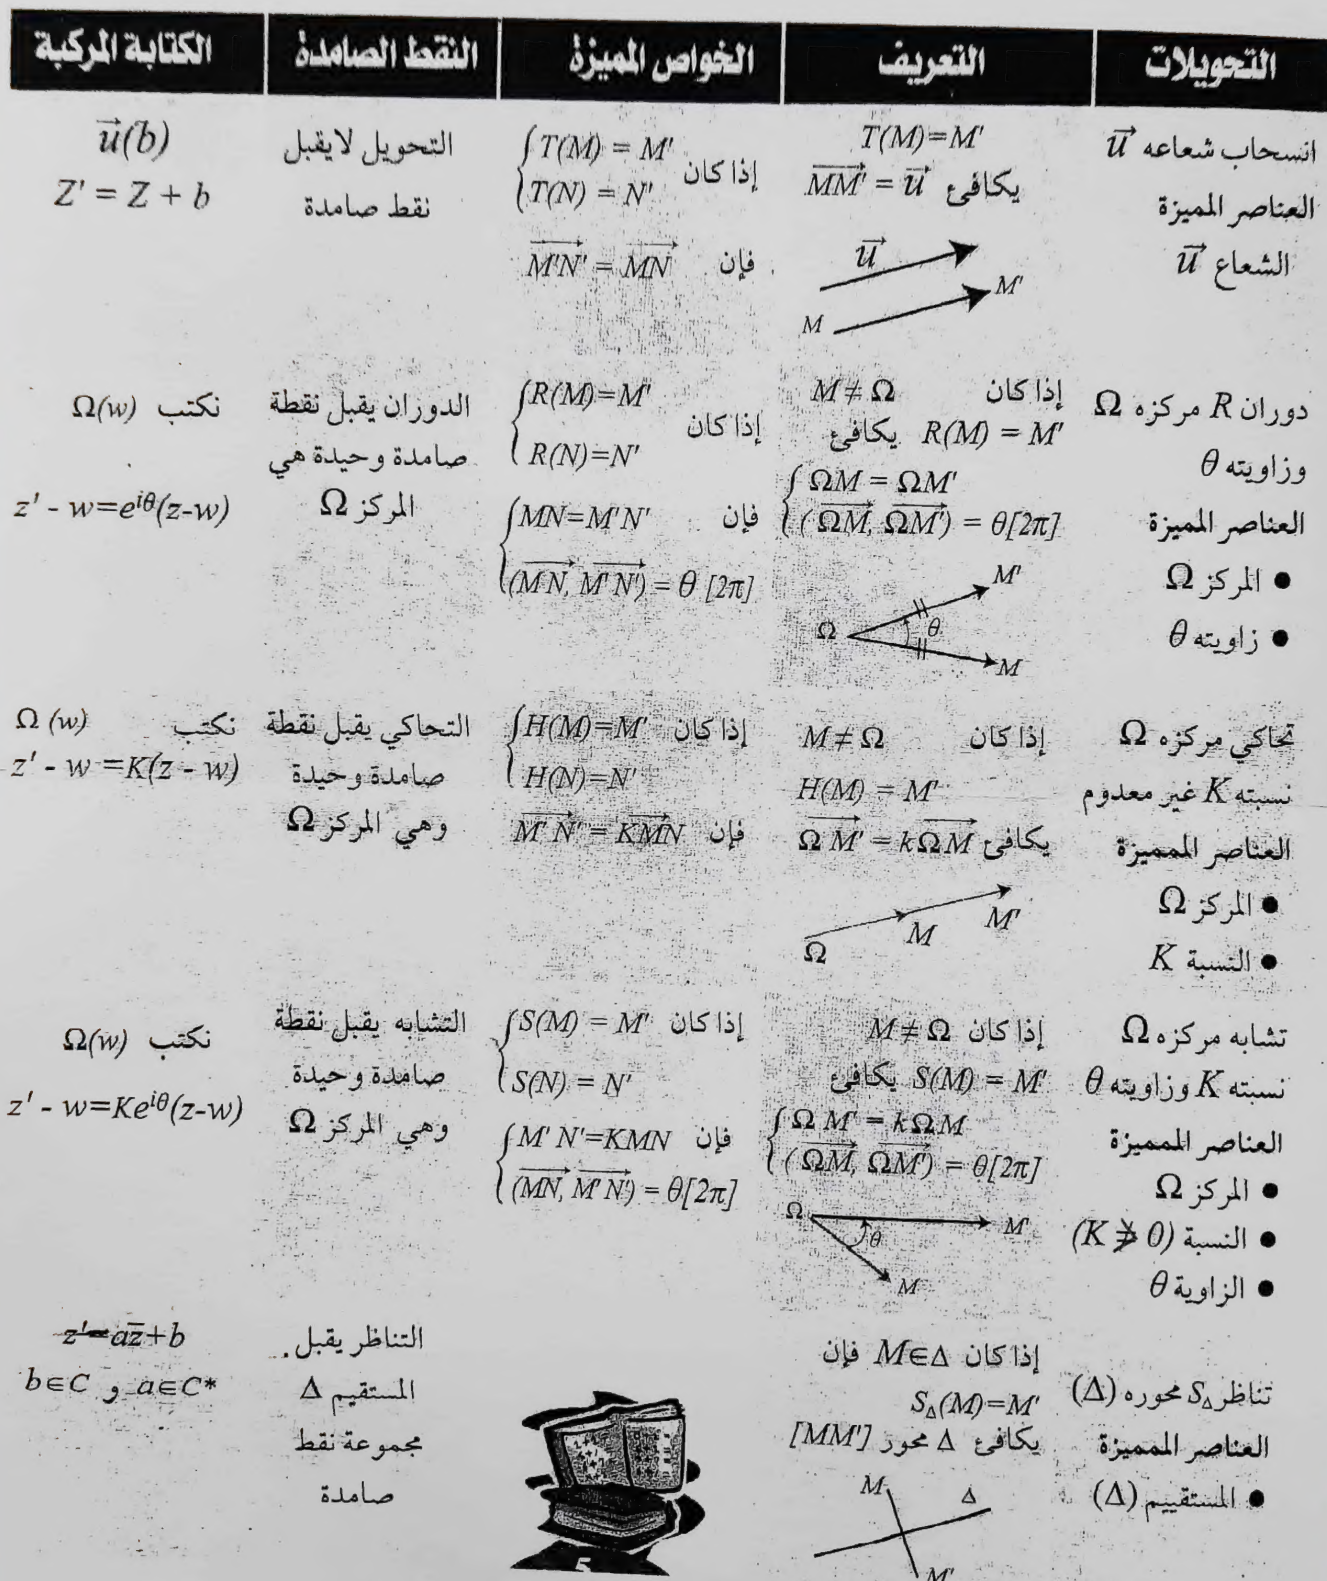 التحويلات | التعريف | الخواص المميزة | النقط الصامدة | الكتابة المركبة
انسحاب شعاعه $\vec{u}$
العناصر المميزة
الشعاع $\vec{u}$
T(M)=M'
يكافئ $\overrightarrow{MM'} = \vec{u}$
$\vec{u}$
M'
M
إذا كان $\begin{cases} T(M) = M' \\ T(N) = N' \end{cases}$
فإن $\overrightarrow{M'N'} = \overrightarrow{MN}$
التحويل لايقبل
نقط صامدة
$\vec{u}(b)$
Z' = Z + b
دوران R مركزه Ω
وزاويته θ
العناصر المميزة
● المركز Ω
● زاويته θ
إذا كان M ≠ Ω
R(M) = M' يكافئ
$\begin{cases} ΩM = ΩM' \\ (\overrightarrow{ΩM}, \overrightarrow{ΩM'}) = θ[2π] \end{cases}$
M'
Ω θ
M
إذا كان $\begin{cases} R(M)=M' \\ R(N)=N' \end{cases}$
فإن $\begin{cases} MN=M'N' \\ (\overrightarrow{MN}, \overrightarrow{M'N'}) = θ [2π] \end{cases}$
الدوران يقبل نقطة
صامدة وحيدة هي
المركز Ω
نكتب Ω(w)
$z' - w=e^{iθ}(z-w)$
تحاكي مركزه Ω
نسبته K غير معدوم
العناصر المميزة
● المركز Ω
● النسبة K
إذا كان M ≠ Ω
H(M) = M'
يكافئ $\overrightarrow{ΩM'} = k\overrightarrow{ΩM}$
Ω M M'
إذا كان $\begin{cases} H(M)=M' \\ H(N)=N' \end{cases}$
فإن $\overrightarrow{M'N'} = K\overrightarrow{MN}$
التحاكي يقبل نقطة
صامدة وحيدة
وهي المركز Ω
نكتب Ω (w)
z' - w =K(z - w)
تشابه مركزه Ω
نسبته K وزاويته θ
العناصر المميزة
● المركز Ω
● النسبة (K ≯ 0)
● الزاوية θ
إذا كان M ≠ Ω
S(M) = M' يكافئ
$\begin{cases} ΩM' = kΩM \\ (\overrightarrow{ΩM}, \overrightarrow{ΩM'}) = θ[2π] \end{cases}$
Ω M'
θ
M
إذا كان $\begin{cases} S(M) = M' \\ S(N) = N' \end{cases}$
فإن $\begin{cases} M'N'=KMN \\ (\overrightarrow{MN}, \overrightarrow{M'N'}) = θ[2π] \end{cases}$
التشابه يقبل نقطة
صامدة وحيدة
وهي المركز Ω
نكتب Ω(w)
$z' - w=Ke^{iθ}(z-w)$
تناظر $S_Δ$ محوره (Δ)
العناصر المميزة
● المستقييم (Δ)
إذا كان M∈Δ فإن
$S_Δ(M)=M'$
يكافئ Δ محور [MM']
M Δ
M'
التناظر يقبل
المستقيم Δ
مجموعة نقط
صامدة
$z'=a\bar{z}+b$
a∈C* و b∈C
5